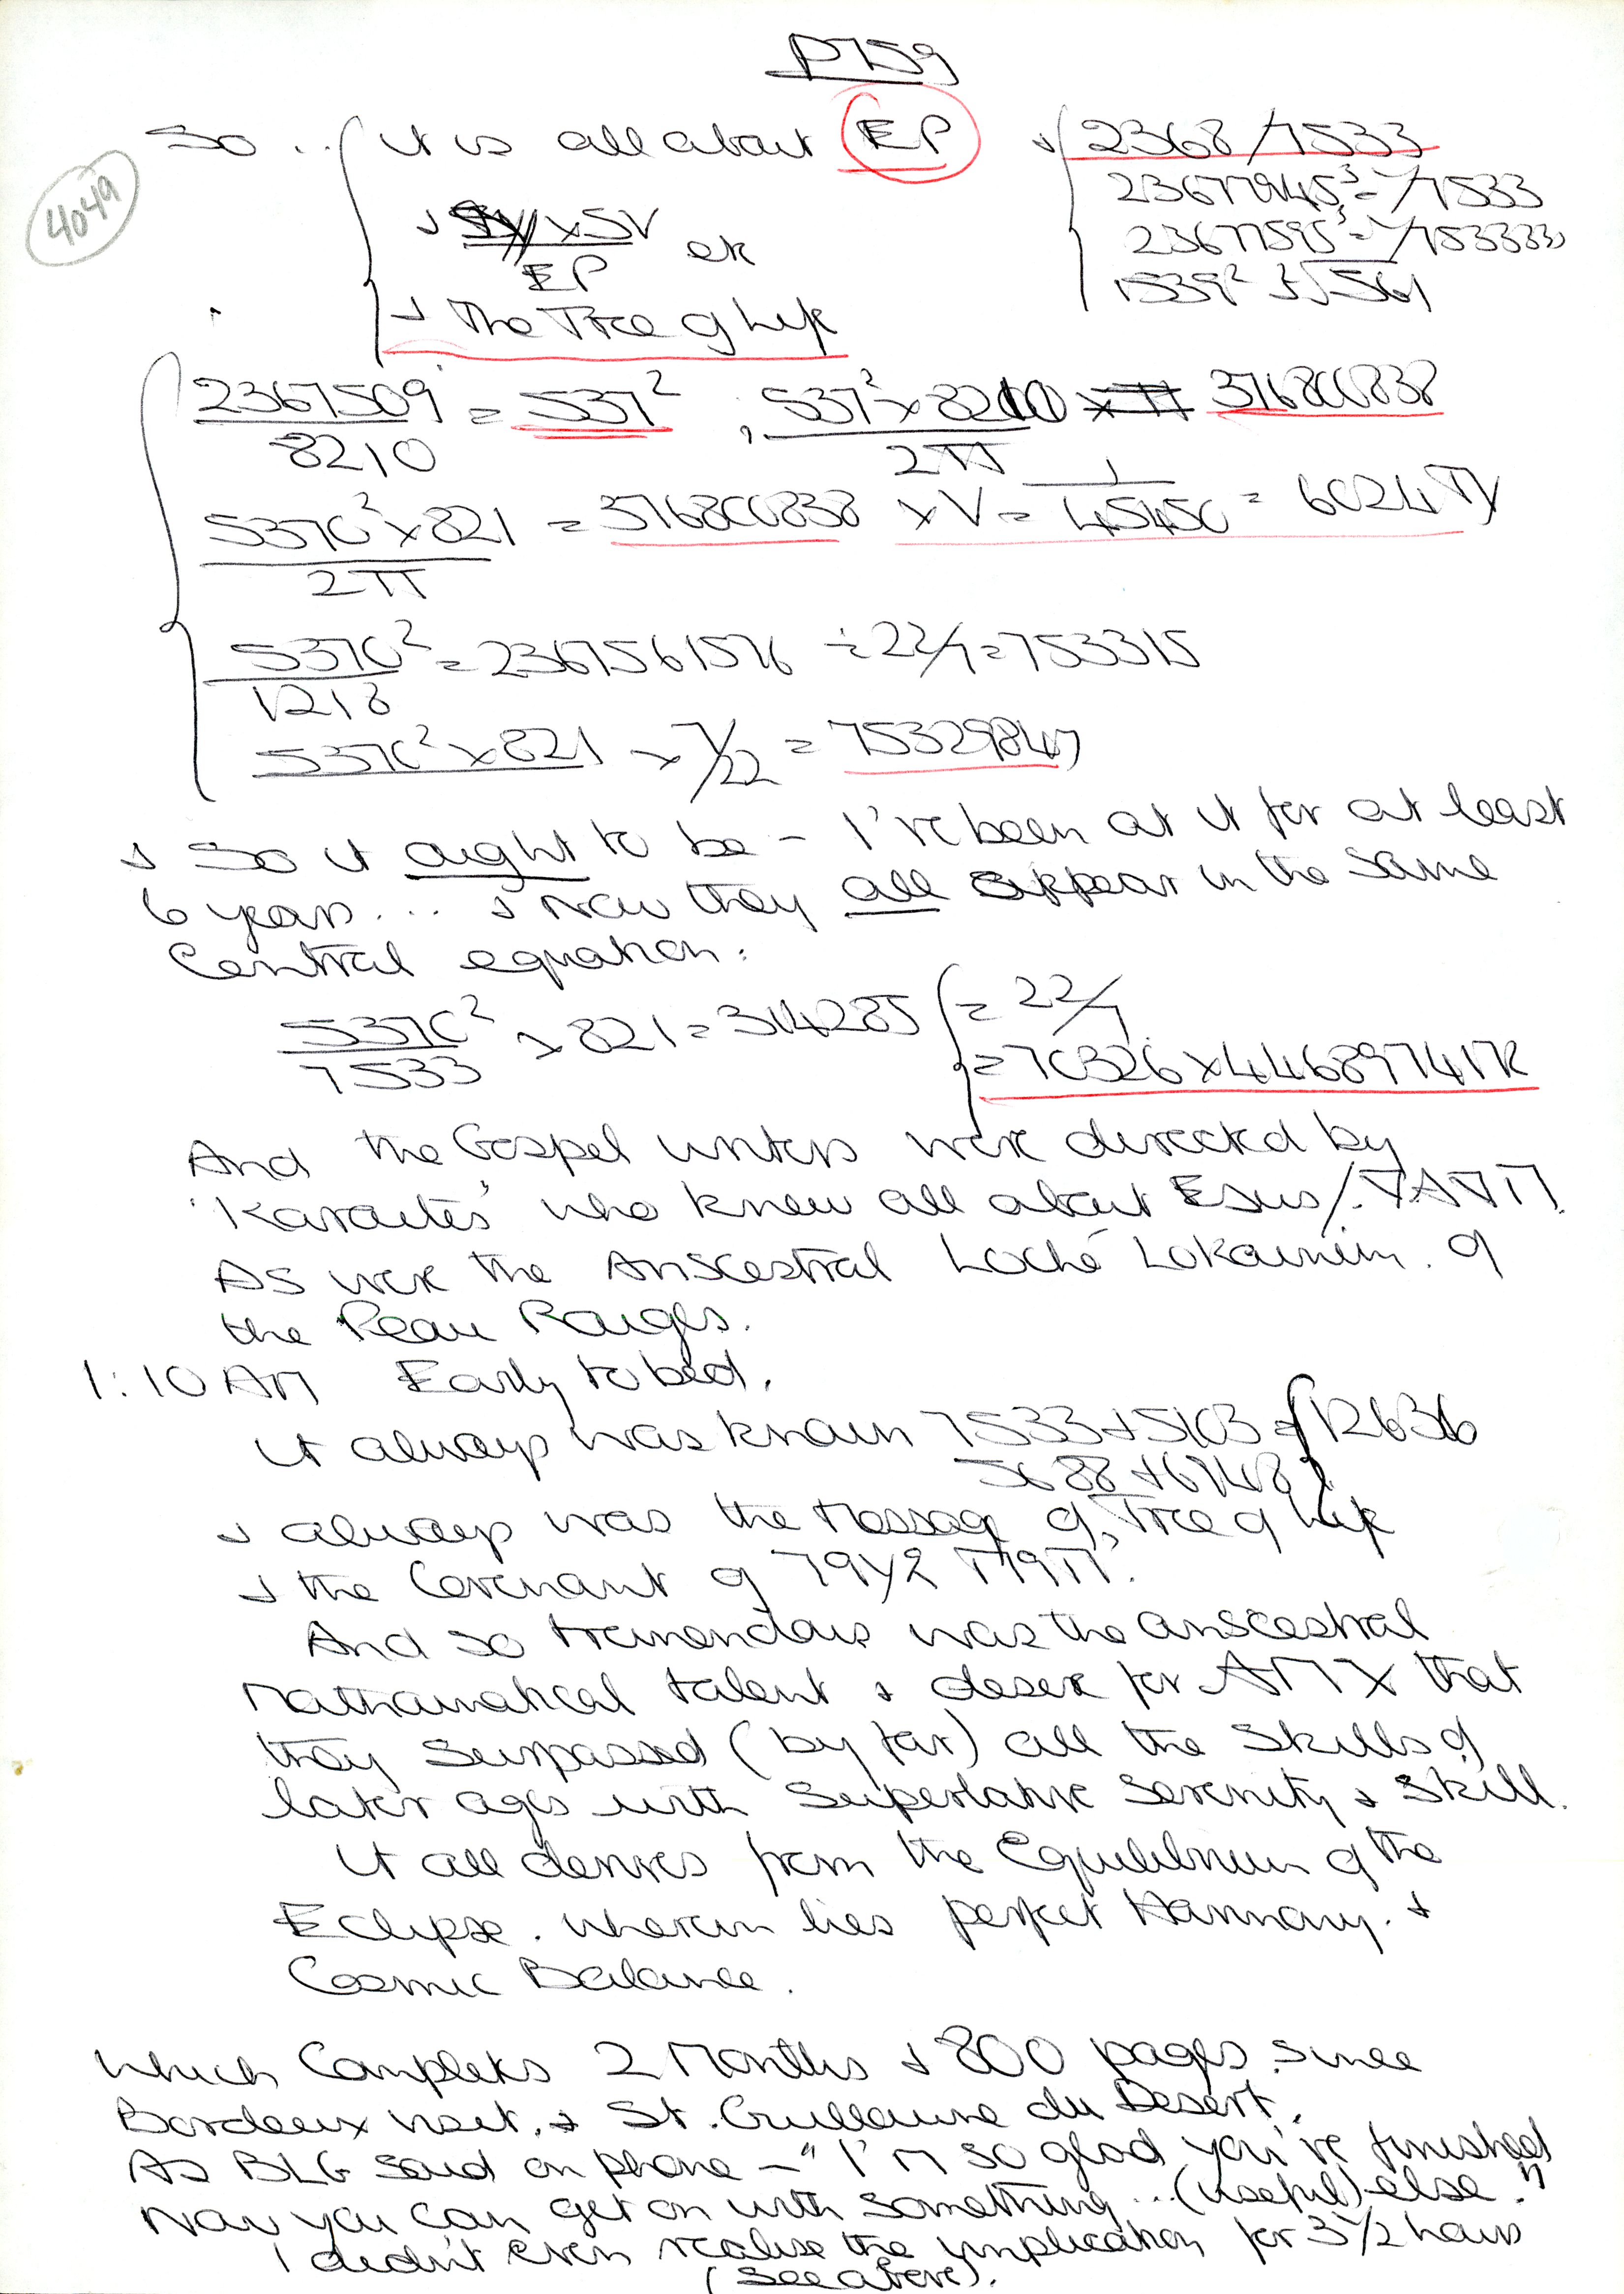 P759
4049
So .. it is all about EP
& 2368/7533
23677945³ = 1/7533
23677595³ = 1/753333
& xSV etc
EP
1539² 561
& The Tree of Life
2367509 = 537² , 537² x 8210 376800838
8210 2π
5370² x 821 = 376800838 x V = 1 = 6024
2π 45450
5370² = 2367561576 ÷ 22/7 = 753315
1218
5370² x 821 x 7/22 = 75329847
& So it ought to be - I've been at it for at least
6 years ... & Now they all appear in the same
Central equation:
5370² x 821 = 314285 = 22/7
7533 = 70326 x 446897417R
And the Gospel writers were directed by
'Karaites' who knew all about Esus/
As were the Anscestral Loché Lokaninim. of
the Peau Rouges.
1:10 AM Early to bed.
it always was known 7533 + 5103 = 12636
5688 + 6948
& always was the Message of 'Tree of Life'
& the Covenant of
And so tremendous was the anscestral
Mathamatical talent & desere for that
they surpassed (by far) all the skills of
later ages with superlative serenity & skill.
it all derives from the Equilibrium of the
Eclipse. wherein lies perfect Harmony. &
Cosmic Balance.
Which Completes 2 Months & 800 pages since
Bordeux visit. & St. Guillaume du Desert.
As BLG said on phone - "I'm so glad you've finished
Now you can get on with something ... (useful) else."
I didn't even realise the implication for 3½ hours
(see above).